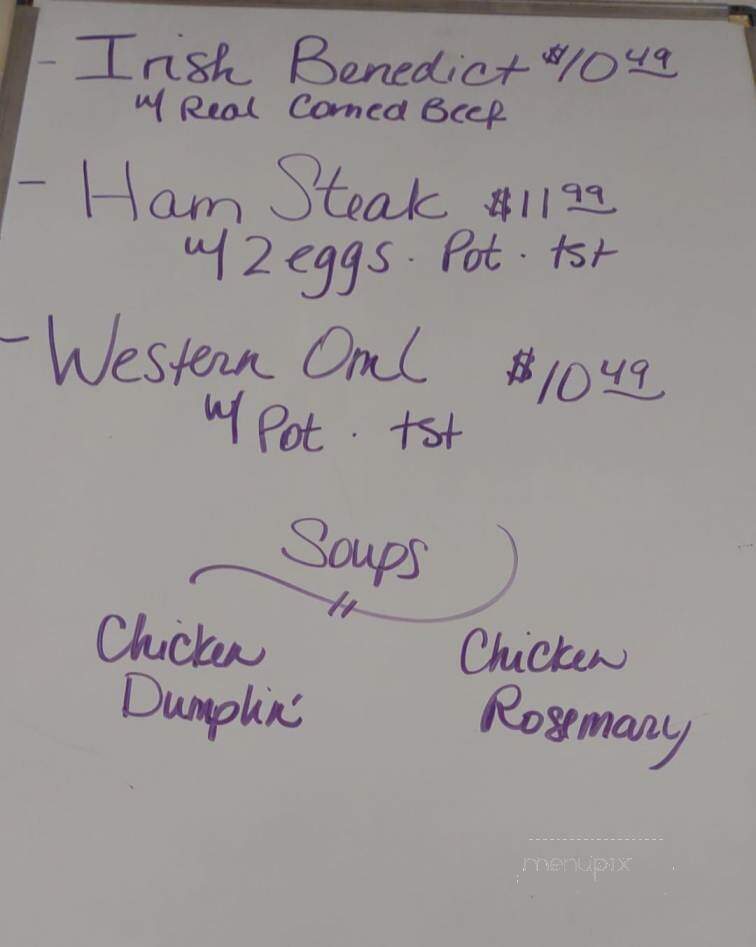 - Irish Benedict $10 49
w/ Real Corned Beef
- Ham Steak $11 99
w/ 2 eggs. Pot. tst
- Western Oml $10 49
w/ Pot. tst
Soups
Chicken Dumplin'
Chicken Rosemary
menupix